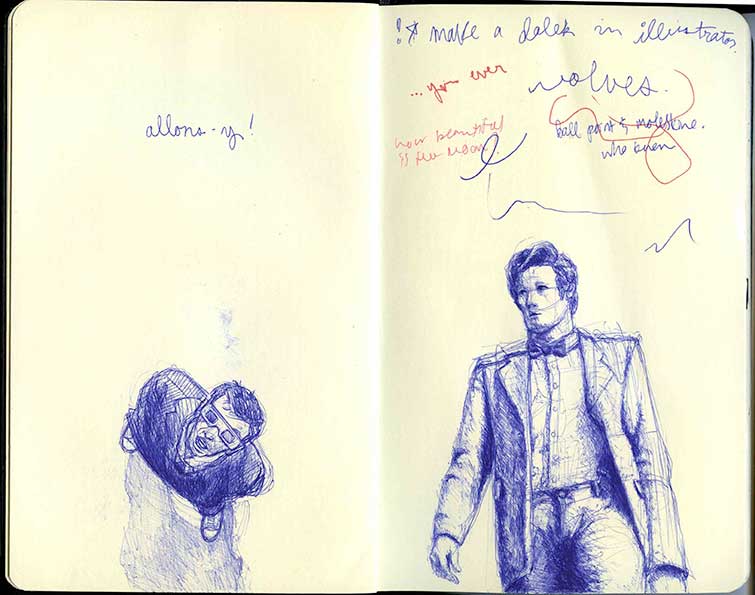 allons-y!
make a dalek in illustrator.
...you ever
wolves.
how beautiful
is the moon.
ball point & moleskine.
who knew